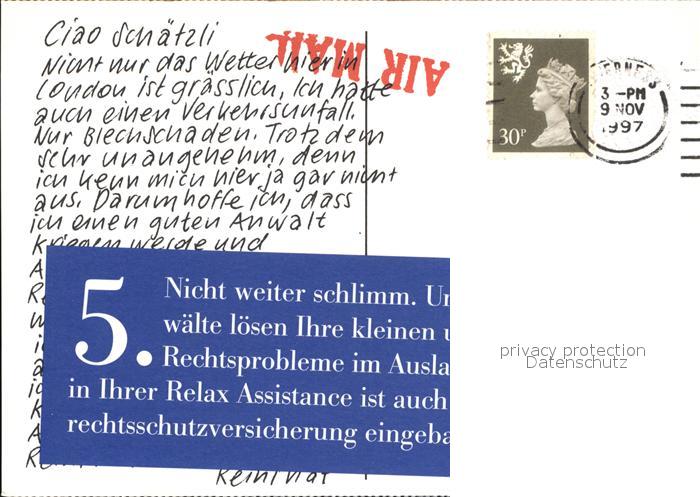 Ciao Schätzli
Nicht nur das Wetter hier in
London ist grässlich, ich hatte
auch einen Verkehrsunfall.
Nur Blechschaden. Trotzdem
sehr unangehm, denn
ich kenn mich hier ja gar nicht
aus. Darum hoffe ich, dass
ich einen guten Anwalt
kriegen werde und
AIR MAIL
30P
3 -PM
9 NOV
1997
5.
Nicht weiter schlimm.
wälte lösen Ihre kleinen
Rechtsprobleme im
in Ihrer Relax Assistance ist auch
rechtsschutzversicherung
privacy protection
Datenschutz